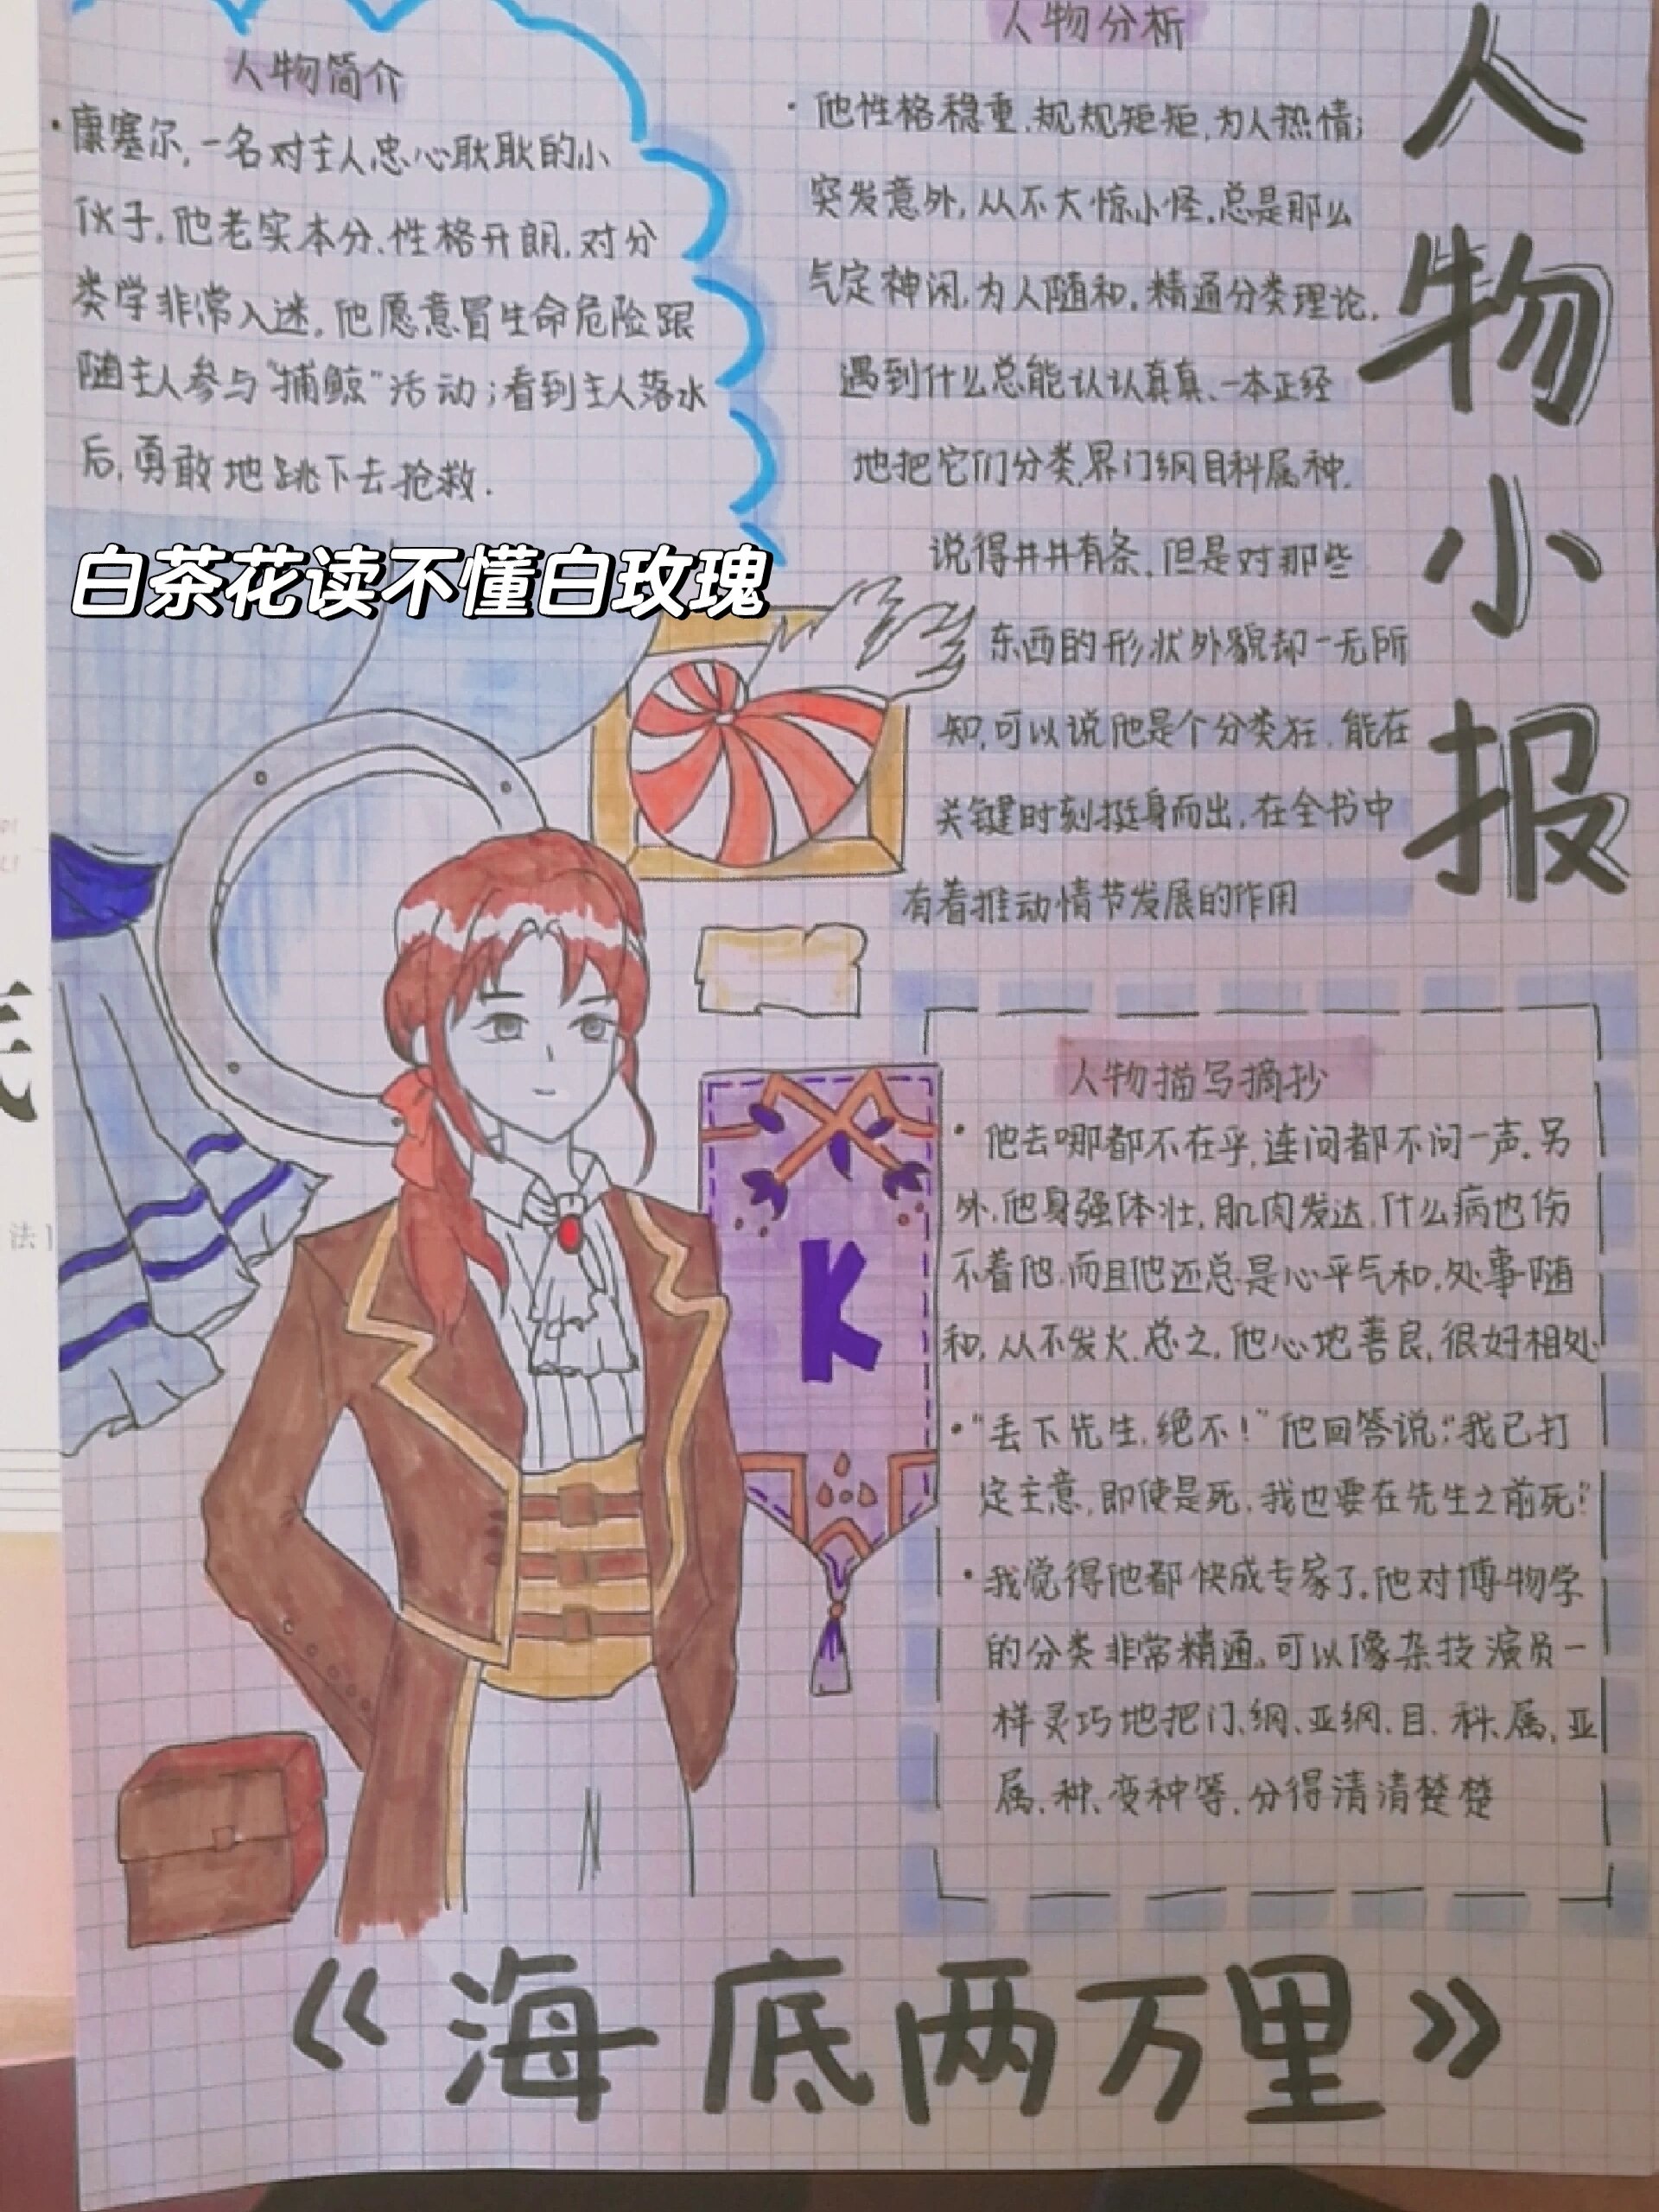 人物小报
人物简介
·康塞尔,一名对主人忠心耿耿的小
伙子,他老实本分、性格开朗,对分
类学非常入迷,他愿意冒生命危险跟
随主人参与“捕鲸”活动;看到主人落水
后,勇敢地跳下去抢救.
白茶花读不懂白玫瑰
人物分析
·他性格稳重,规规矩矩,为人热情;
突发意外,从不大惊小怪,总是那么
气定神闲,为人随和,精通分类理论,
遇到什么总能认认真真、一本正经
地把它们分类,界门纲目科属种,
说得井井有条,但是对那些
东西的形状外貌却一无所
知,可以说他是个分类狂,能在
关键时刻挺身而出,在全书中
有着推动情节发展的作用
K
人物描写摘抄
·他去哪都不在乎,连问都不问一声.另
外,他身强体壮,肌肉发达,什么病也伤
不着他.而且他还总是心平气和,处事随
和,从不发火.总之,他心地善良,很好相处
·“丢下先生,绝不!”他回答说:“我已打
定主意,即使是死,我也要在先生之前死!”
·我觉得他都快成专家了,他对博物学
的分类非常精通。可以像杂技演员一
样灵巧地把门、纲、亚纲、目、科、属、亚
属、种、变种等,分得清清楚楚
《海底两万里》
法]